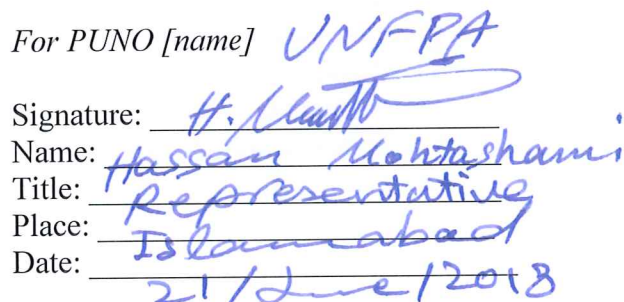 For PUNO [name] UNFPA
Signature: H.
Name: Hassan Mohtashami
Title: Representative
Place: Islamabad
Date: 21/June/2018